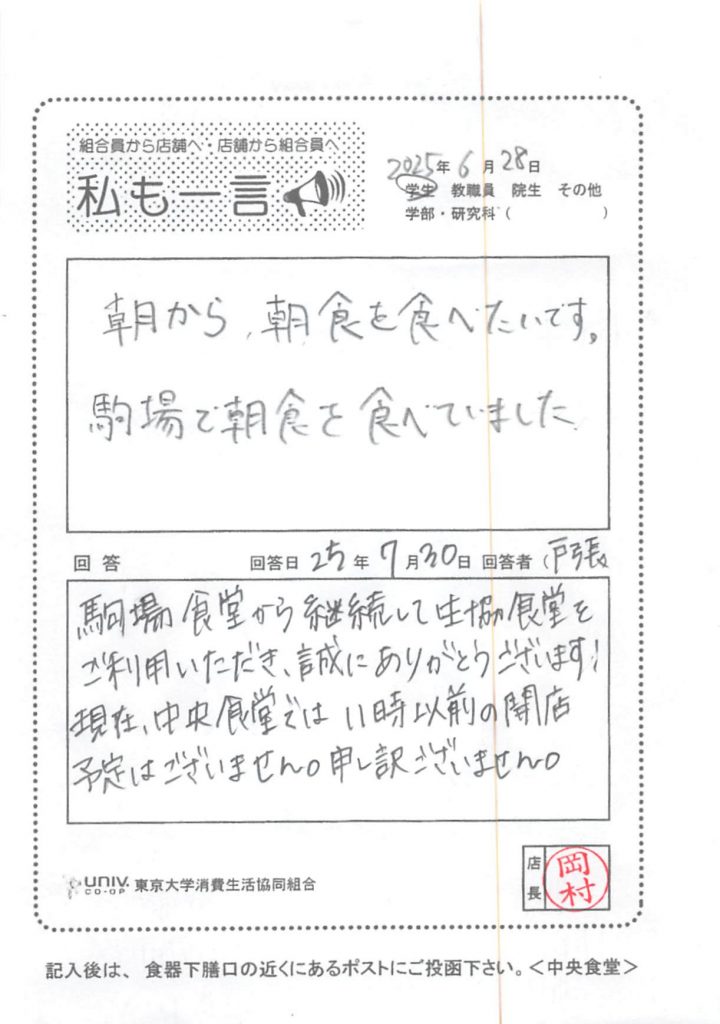 組合員から店舗へ・店舗から組合員へ
私も一言
2025年6月28日
学生 教職員 院生 その他
学部・研究科（ ）
朝から、朝食を食べたいです。
駒場で朝食を食べていました
回答 回答日 25年7月30日 回答者（戸張
駒場食堂から継続して生協食堂を
ご利用いただき、誠にありがとうございます！
現在、中央食堂では11時以前の開店
予定はございません。申し訳ございません。
店長 岡村
UNIV. CO-OP 東京大学消費生活協同組合
記入後は、食器下膳口の近くにあるポストにご投函下さい。＜中央食堂＞